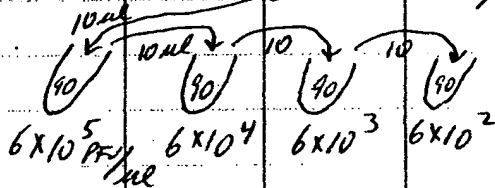 10 µl
10 µl 10 10
90 90 90 90
6 x 10^5 PFU/µl 6 x 10^4 6 x 10^3 6 x 10^2